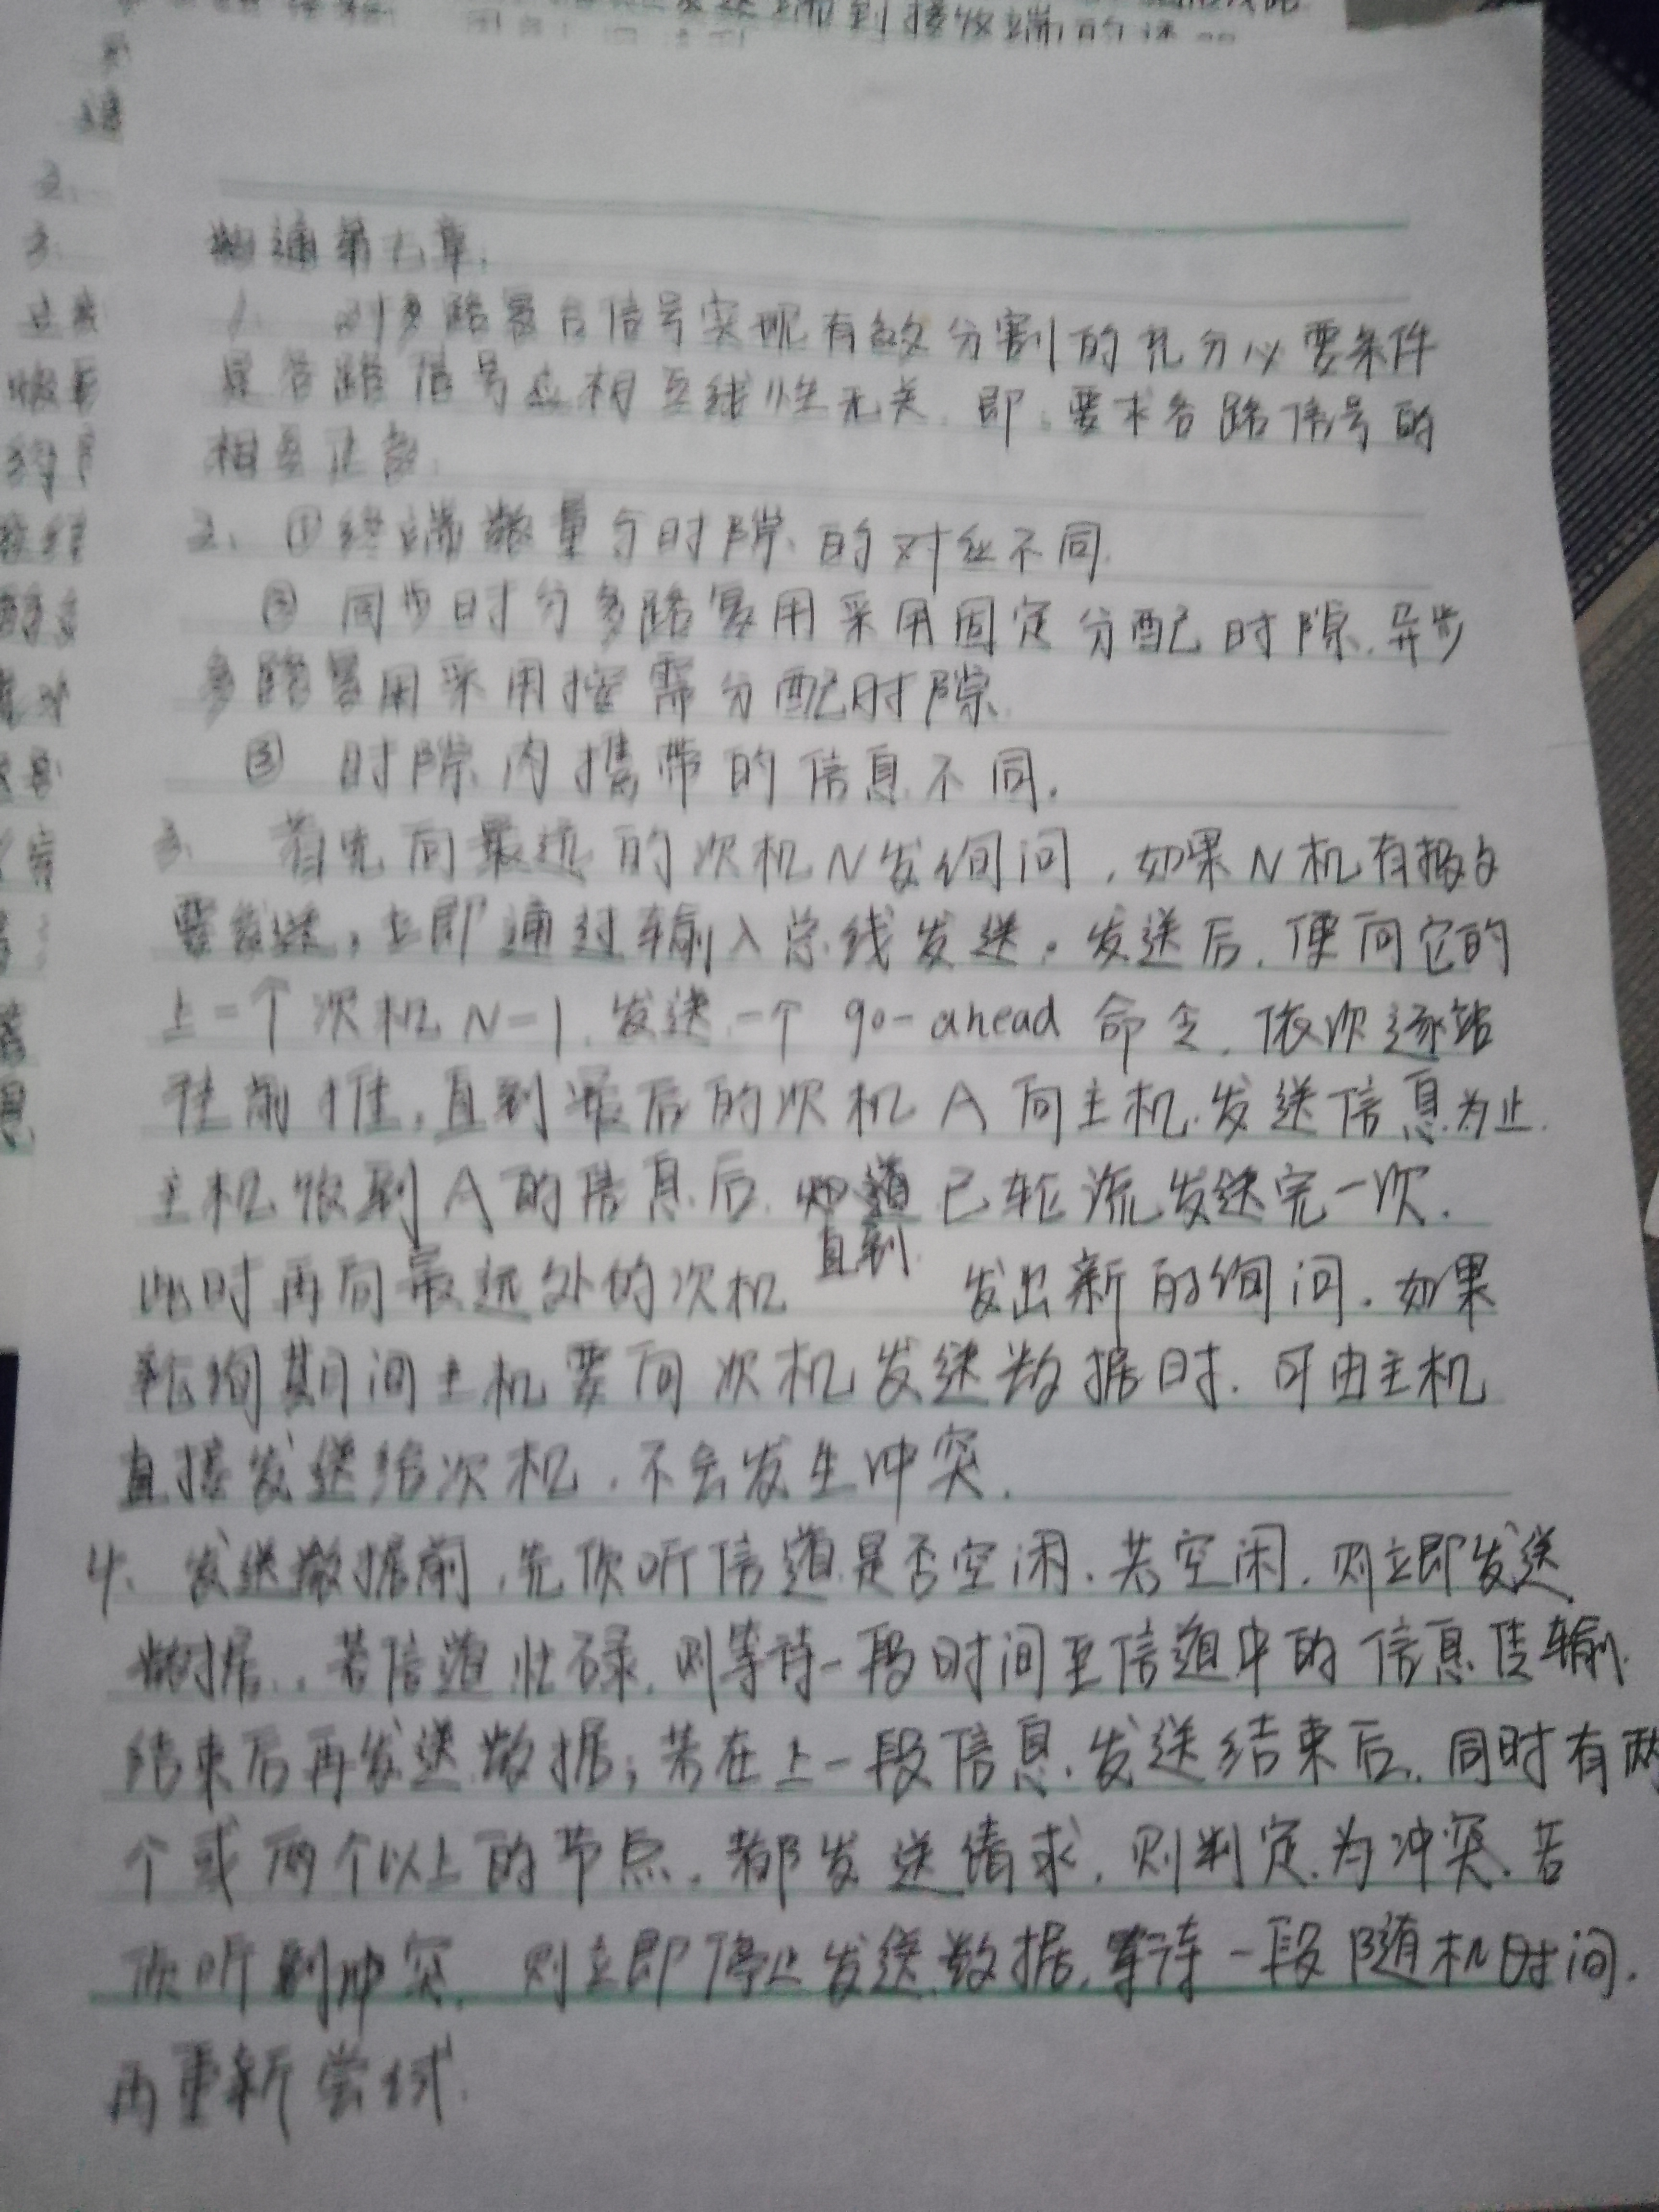 到接收端的
数通第七章.
1. 对多路复合信号实现有效分割的充分必要条件
是各路信号应相互线性无关.即.要求各路信号的
相互正交.
2. ①终端数量与时隙的对应不同.
② 同步时分多路复用采用固定分配时隙.异步
多路复用采用按需分配时隙.
③ 时隙内携带的信息不同.
3. 首先向最远的次机N发询问,如果N机有报文
要发送,立即通过输入总线发送。发送后.便向它的
上一个次机N-1.发送一个 go-ahead 命令.依次逐站
往前推,直到最后的次机A向主机发送信息为止.
主机收到A的信息后. 已轮流发送完一次.
直到
此时再向最远处的次机 发出新的询问.如果
轮询期间主机要向次机发送数据时.可由主机
直接发送给次机.不会发生冲突.
4. 发送数据前,先侦听信道是否空闲.若空闲.则立即发送
数据.若信道忙碌.则等待一段时间至信道中的信息传输
结束后再发送数据;若在上一段信息发送结束后.同时有两
个或两个以上的节点.都发送请求.则判定为冲突.若
侦听到冲突.则立即停止发送数据.等待一段随机时间.
再重新尝试.